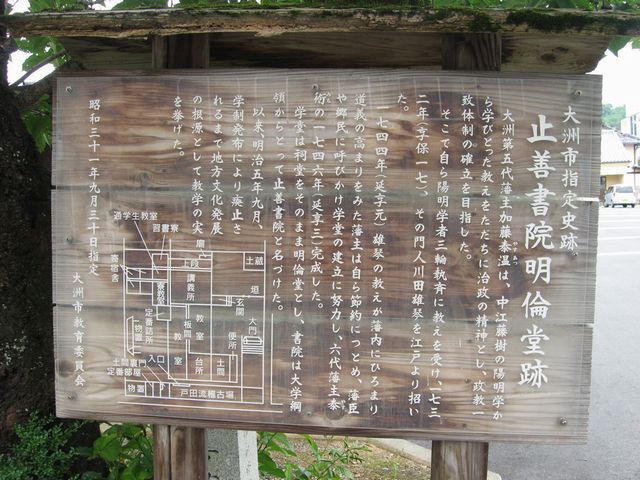 大洲市指定史跡
止善書院明倫堂跡
大洲第五代藩主加藤泰温は、中江藤樹の陽明学か
やすあつ
ら学びとった教えをただちに治政の精神とし、政教一
致体制の確立を目指した。
そこで自ら陽明学者三輪執斉に教えを受け、一七三
二年(享保一七)、その門人川田雄琴を江戸より招い
た。
一七四四年(延享元)雄琴の教えが藩内にひろまり
道義の高まりをみた藩主は自ら節約につとめ、藩臣
や郷民に呼びかけ学堂の建立に努力し、六代藩主泰
術の一七四六年(延享三)完成した。
学堂は祠堂をそのまま明倫堂とし、書院は大学綱
領からとって止善書院と名づけた。
以来、明治五年九月、
学制発布により廃止さ
れるまで地方文化発展
の根源として教学の実
を挙げた。
昭和三十一年九月三十日指定
大洲市教育委員会
通学生教室
習書寮
寄宿舎
廊
上段
講義所
土蔵
垣
玄関
大門
定番詰所
板間
教室
便所
物置
教室
台所
土間
入口
土間裏門
定番部屋
物置
戸田流稽古場